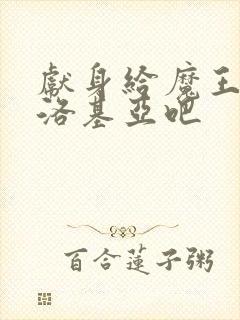 獻身給魔王
洛基亞吧
百合蓮子粥